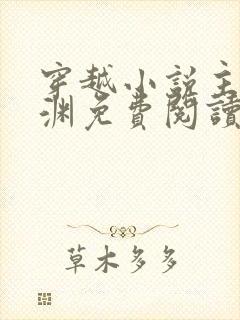 穿越小說主
淵免費閱讀
草木多多